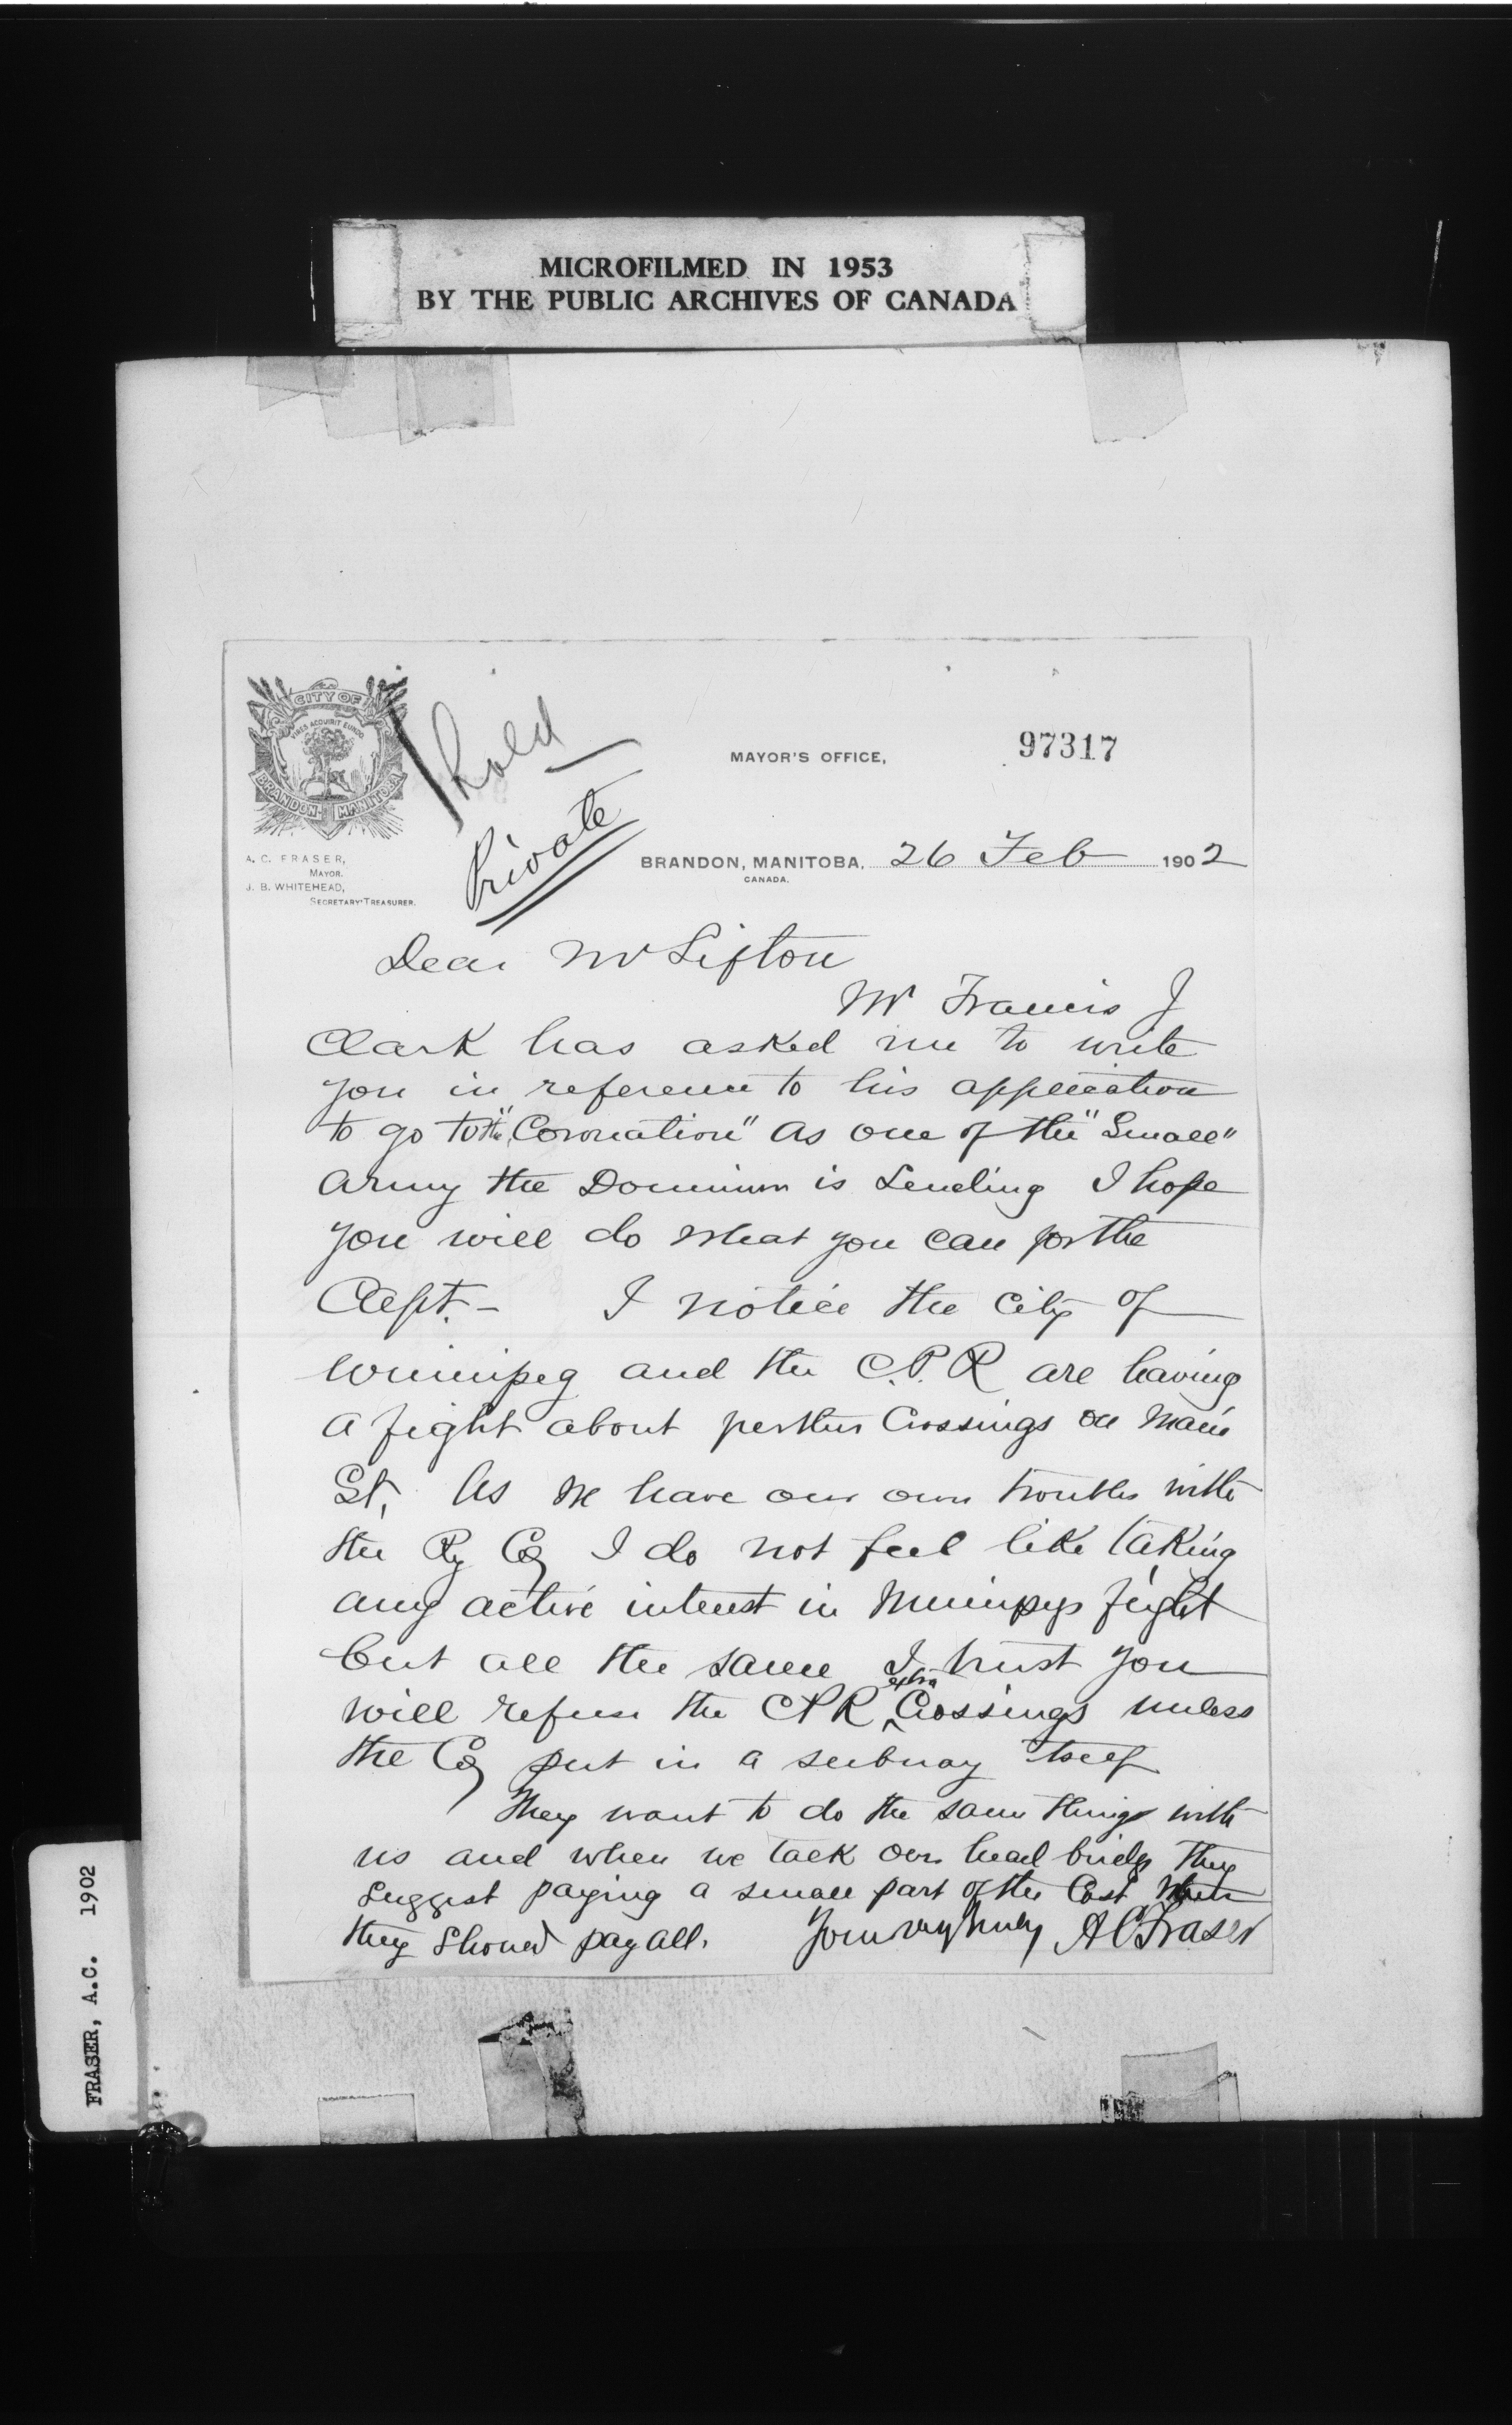 MICROFILMED IN 1953
BY THE PUBLIC ARCHIVES OF CANADA
CITY OF
VIRES ACQUIRIT EUNDO
BRANDON MANITOBA
hold
Private
MAYOR'S OFFICE,
97317
A. C. FRASER,
MAYOR.
J. B. WHITEHEAD,
SECRETARY-TREASURER.
BRANDON, MANITOBA, 26 Feb 1902
CANADA.
Dear Mr Sifton
Mr Francis J
Clark has asked me to write
you in reference to his application
to go to the "Coronation" as one of the "Small"
army the Dominion is sending I hope
you will do what you can for the
Capt. - I notice the city of
Winnipeg and the C.P.R are having
a fight about further Crossings on Main
St. As we have our own troubles with
the Ry Co, I do not feel like taking
any active interest in Winnipegs fight
but all the same I trust you
will refuse the CPR extra Crossings unless
the Co, put in a subway itself
They want to do the same thing with
us and when we talk over head bridge they
suggest paying a small part of the Cost when
they should pay all. Yours very truly A C Fraser
FRASER, A.C. 1902